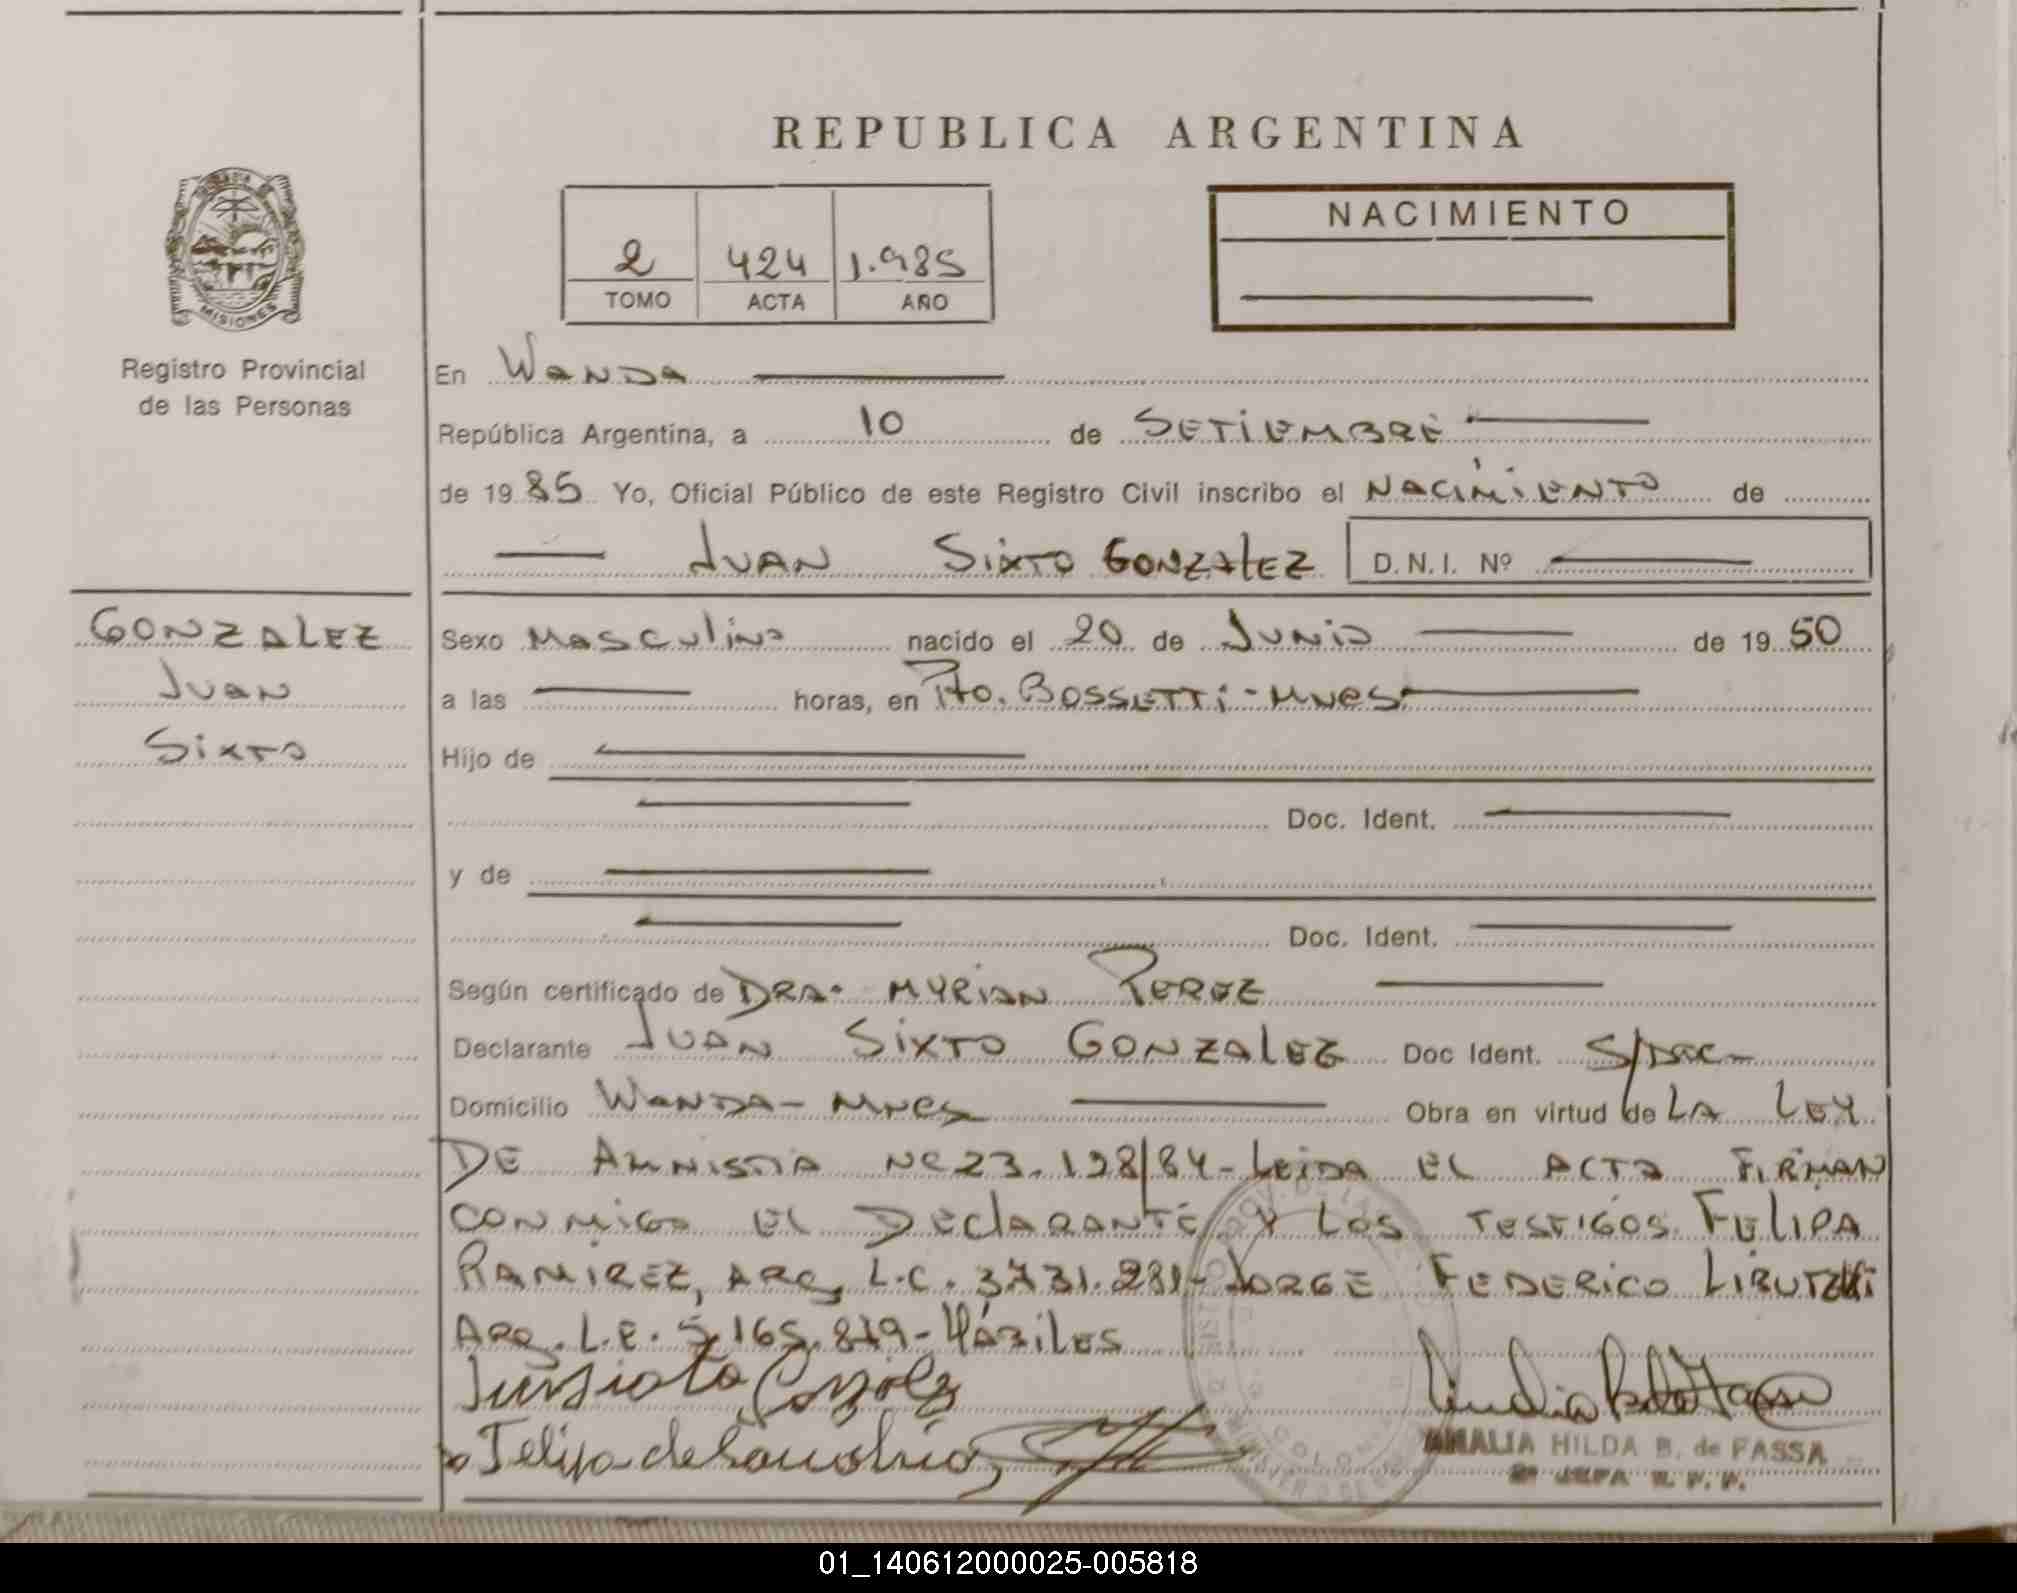 REPUBLICA ARGENTINA
2 424 1.985
TOMO ACTA AÑO
NACIMIENTO
MISIONES
Registro Provincial
de las Personas
En WANDA
República Argentina, a 10 de SETIEMBRE
de 1985 Yo, Oficial Público de este Registro Civil inscribo el NACIMIENTO de
JUAN SIXTO GONZALEZ D.N.I. Nº
GONZALEZ
JUAN
SIXTO
Sexo MASCULINO nacido el 20 de JUNIO de 1950
a las horas, en Pto. BOSSETTI - MNES
Hijo de
Doc. Ident.
y de
Doc. Ident.
Según certificado de DRA. MYRIAN PEREZ
Declarante JUAN SIXTO GONZALEZ Doc Ident. S/DOC
Domicilio WANDA - MNES Obra en virtud de LA LEY
DE AMNISTIA Nº 23.128/84 - LEIDA EL ACTA FIRMAN
CONMIGO EL DECLARANTE Y LOS TESTIGOS FELIPA
RAMIREZ, ARG. L.C. 3.731.281 - JORGE FEDERICO
ARG. L.E. 5.165.879 - HÁBILES
AMALIA HILDA B. de FASSA
2ª JEFA R. P. P.
01_140612000025-005818